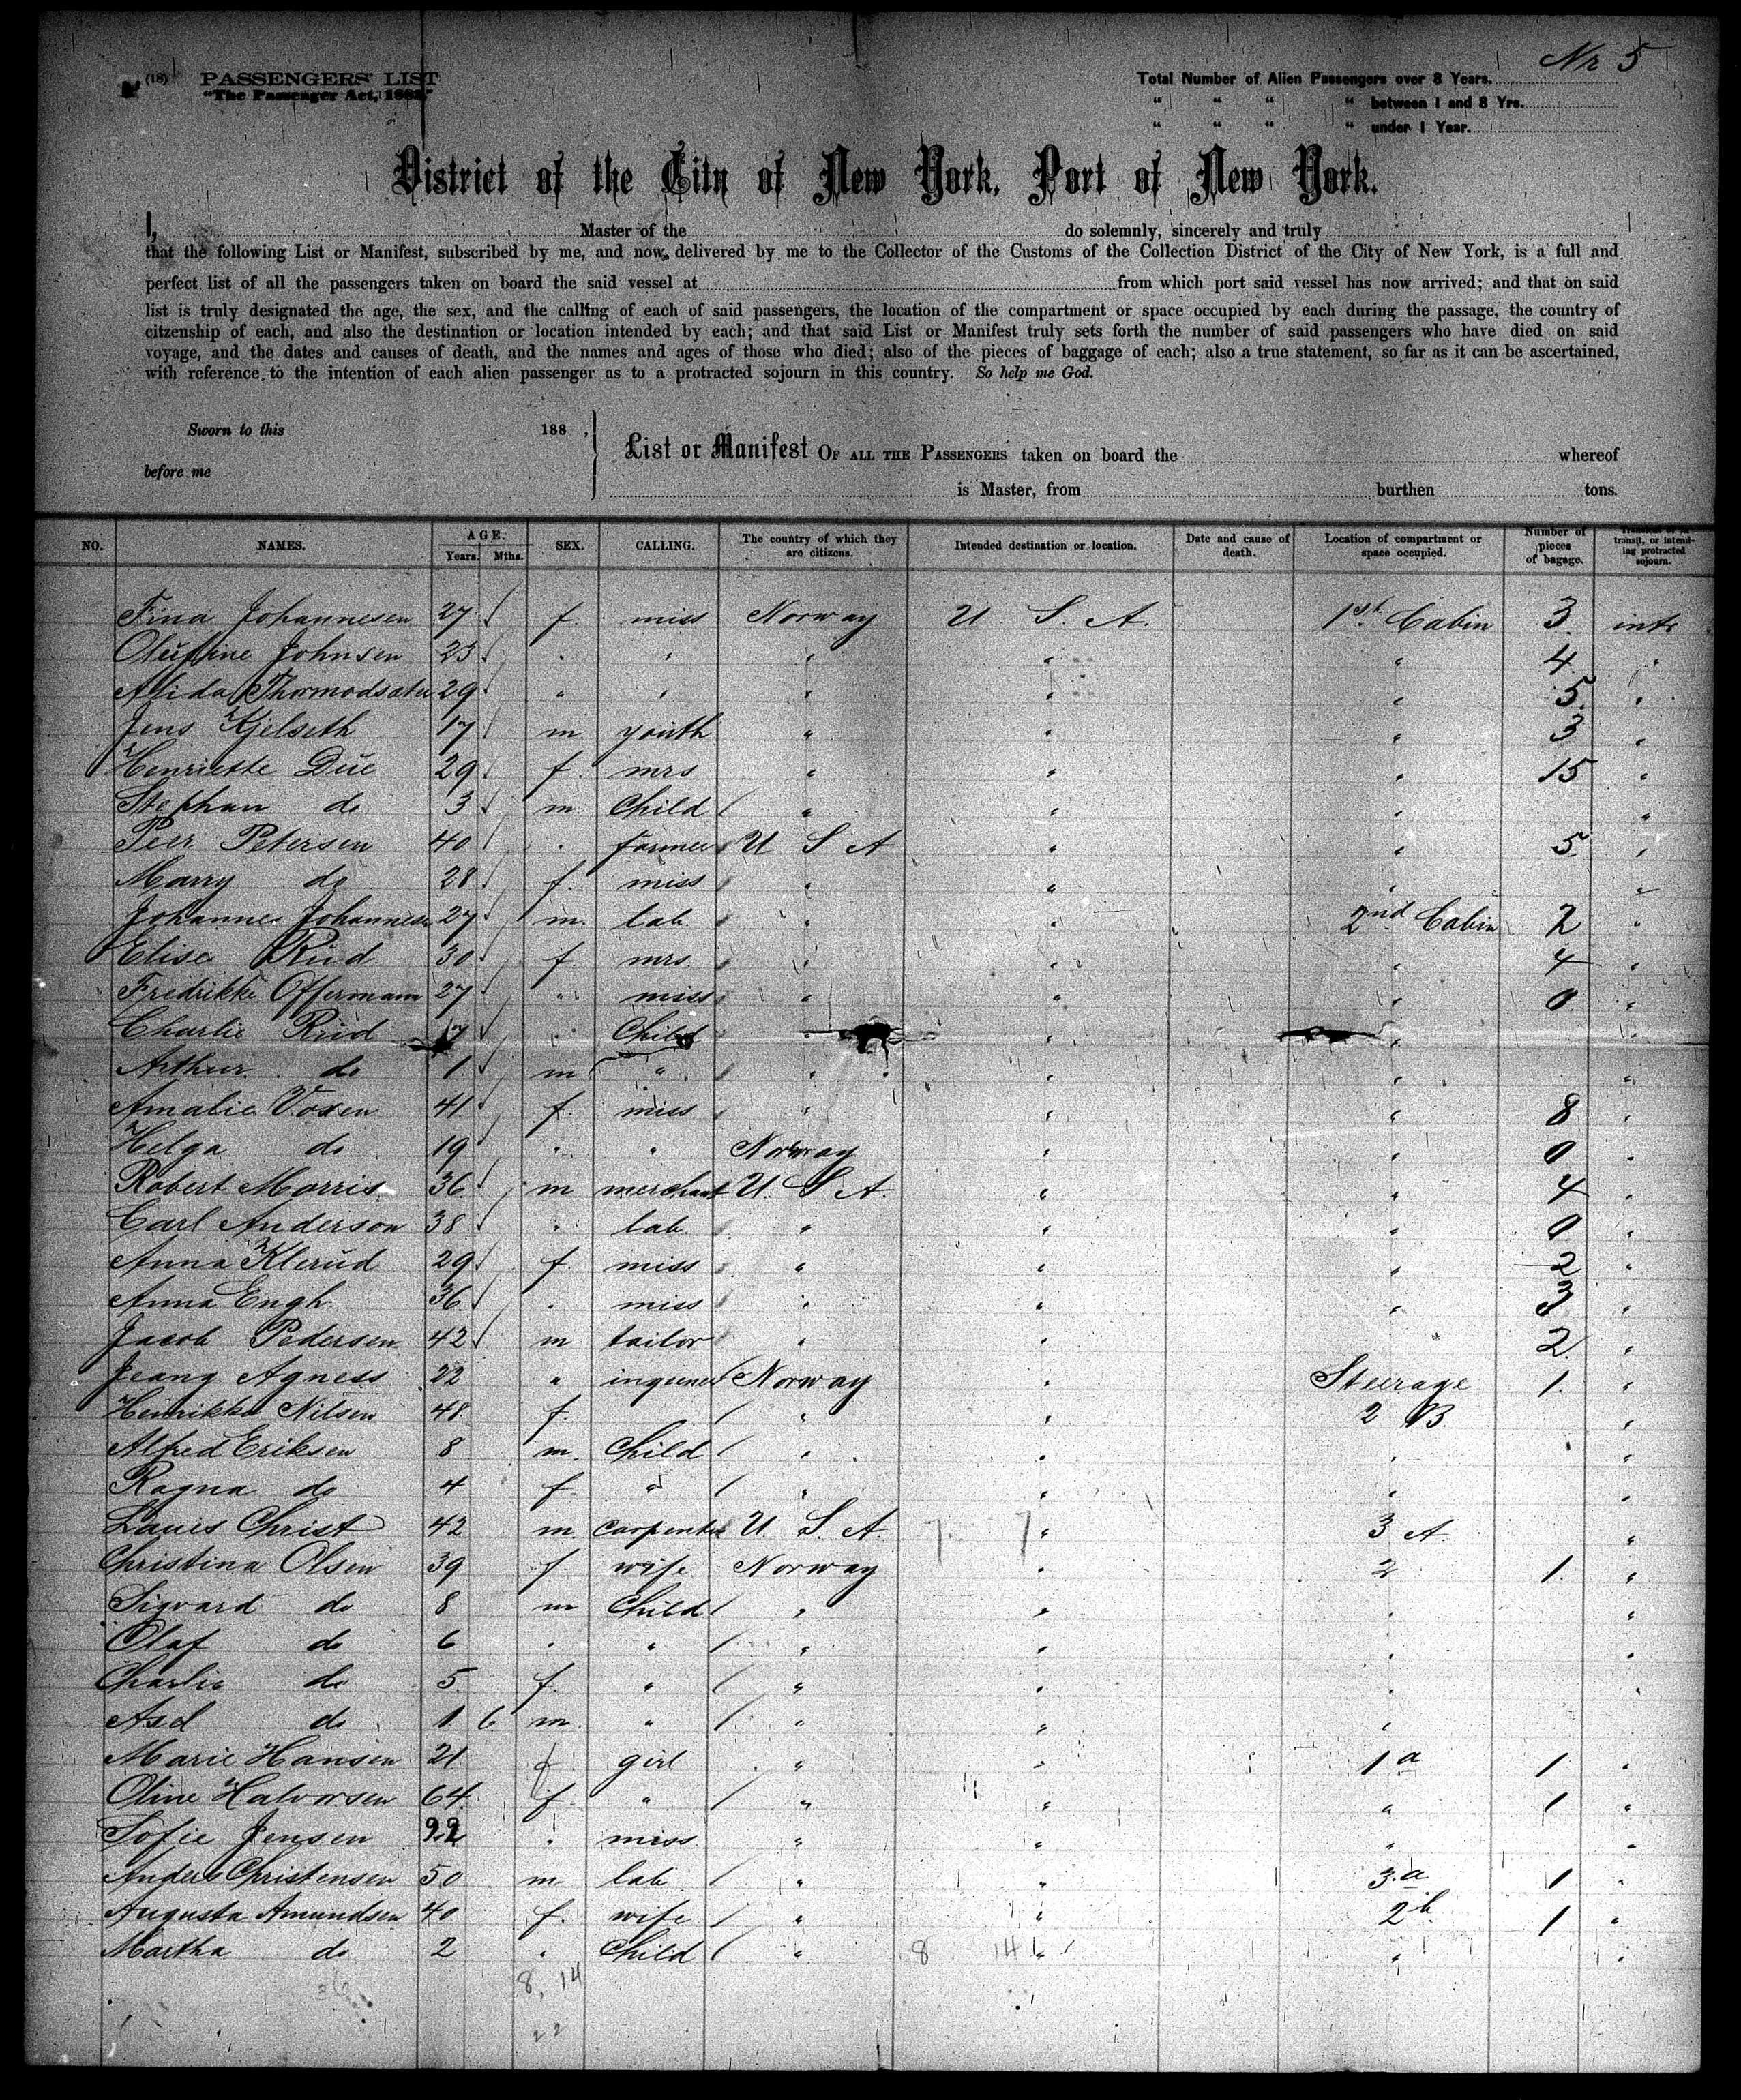 Nr 5
(18) PASSENGERS' LIST
"The Passenger Act, 1882."
Total Number of Alien Passengers over 8 Years.
" " " " between 1 and 8 Yrs.
" " " " under 1 Year.
District of the City of New York, Port of New York.
I, Master of the do solemnly, sincerely and truly
that the following List or Manifest, subscribed by me, and now delivered by me to the Collector of the Customs of the Collection District of the City of New York, is a full and
perfect list of all the passengers taken on board the said vessel at from which port said vessel has now arrived; and that on said
list is truly designated the age, the sex, and the calling of each of said passengers, the location of the compartment or space occupied by each during the passage, the country of
citzenship of each, and also the destination or location intended by each; and that said List or Manifest truly sets forth the number of said passengers who have died on said
voyage, and the dates and causes of death, and the names and ages of those who died; also of the pieces of baggage of each; also a true statement, so far as it can be ascertained,
with reference to the intention of each alien passenger as to a protracted sojourn in this country. So help me God.
Sworn to this 188 ,
before me
List or Manifest OF ALL THE PASSENGERS taken on board the whereof
is Master, from burthen tons.
NO. NAMES. AGE. Years. Mths. SEX. CALLING. The country of which they are citizens. Intended destination or location. Date and cause of death. Location of compartment or space occupied. Number of pieces of bagage. transit, or intending protracted sojourn.
Fina Johannesen 27 f. miss Norway U S. A. 1st. Cabin 3. intr
Olufine Johnsen 23 " " " " " 4 "
Alida 29 " " " " " 5. "
Jens Kjelseth 17 m youth " " " 3 "
Henriette Due 29 f. mrs " " " 15 "
Stephan do 3 m. Child " " " "
Peer Petersen 40 " farmer U S A " " 5 "
Marry do 28 f. miss " " " "
Johannes Johannesen 27 m. lab. " " 2nd Cabin 2 "
Elise Rud 30 f mrs. " " " 4 "
Fredrikke Offermann 27 " miss " " " 0 "
Charlie Rud " Child " " " "
Arthur do 1 m " " " " "
Amalie Voxen 41 f. miss " " " 8 "
Helga do 19 " " Norway " " 0 "
Robert Morris 36 m merchant U. S A. " " 4 "
Carl Anderson 38 " lab " " " 0 "
Anna Klerud 29 f. miss " " " 2 "
Anna Engh 36 " miss " " " 3 "
Jacob Pedersen 42 m tailor " " " 2 "
Jeang Agness 22 " Norway " Steerage 1. "
Henrikke Nilsen 48 f. " " 2 B. "
Alfred Eriksen 8 m. Child " " " "
Ragna do 4 f " " " " "
Laues Christ 42 m carpenter U S. A. " 3 A. "
Christina Olsen 39 f. wife Norway " 2 1. "
Sigvard do 8 m Child " " " "
Olaf do 6 " " " " " "
Charlie do 5 f. " " " " "
Axel do 1 6 m " " " " "
Marie Hansen 21 f girl " " 1 a 1 "
Oline Halvorsen 64 f. " " " " 1 "
Sofie Jensen 22 " miss " " " "
Anders Christensen 50 m lab " " 3.a 1 "
Augusta Amundsen 40 f. wife " " 2 b 1 "
Martha do 2 " Child " 8 14 " " "
36 8, 14
22